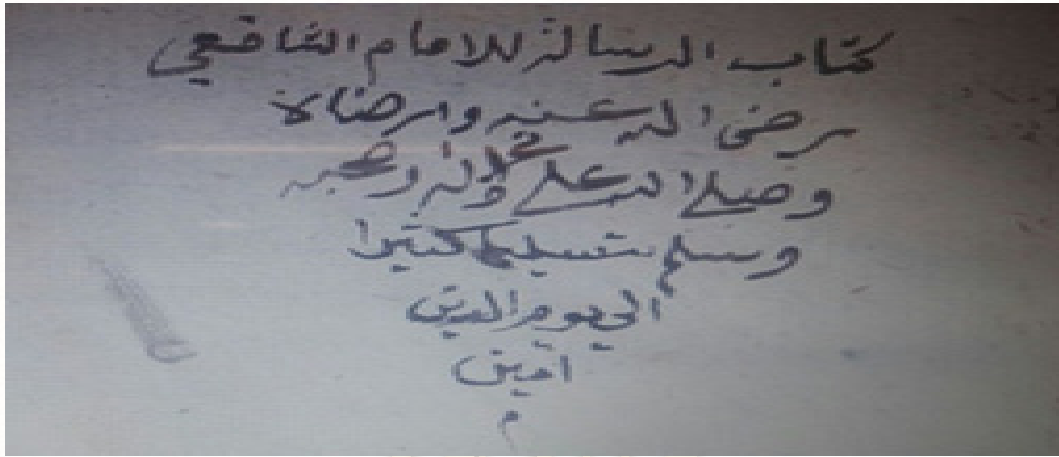 كتاب الرسالة للامام الشافعي
رضى الله عنه وارضاه
وصلى الله على محمد واله وصحبه
وسلم تسليما كثيرا
الى يوم الدين
امين
م